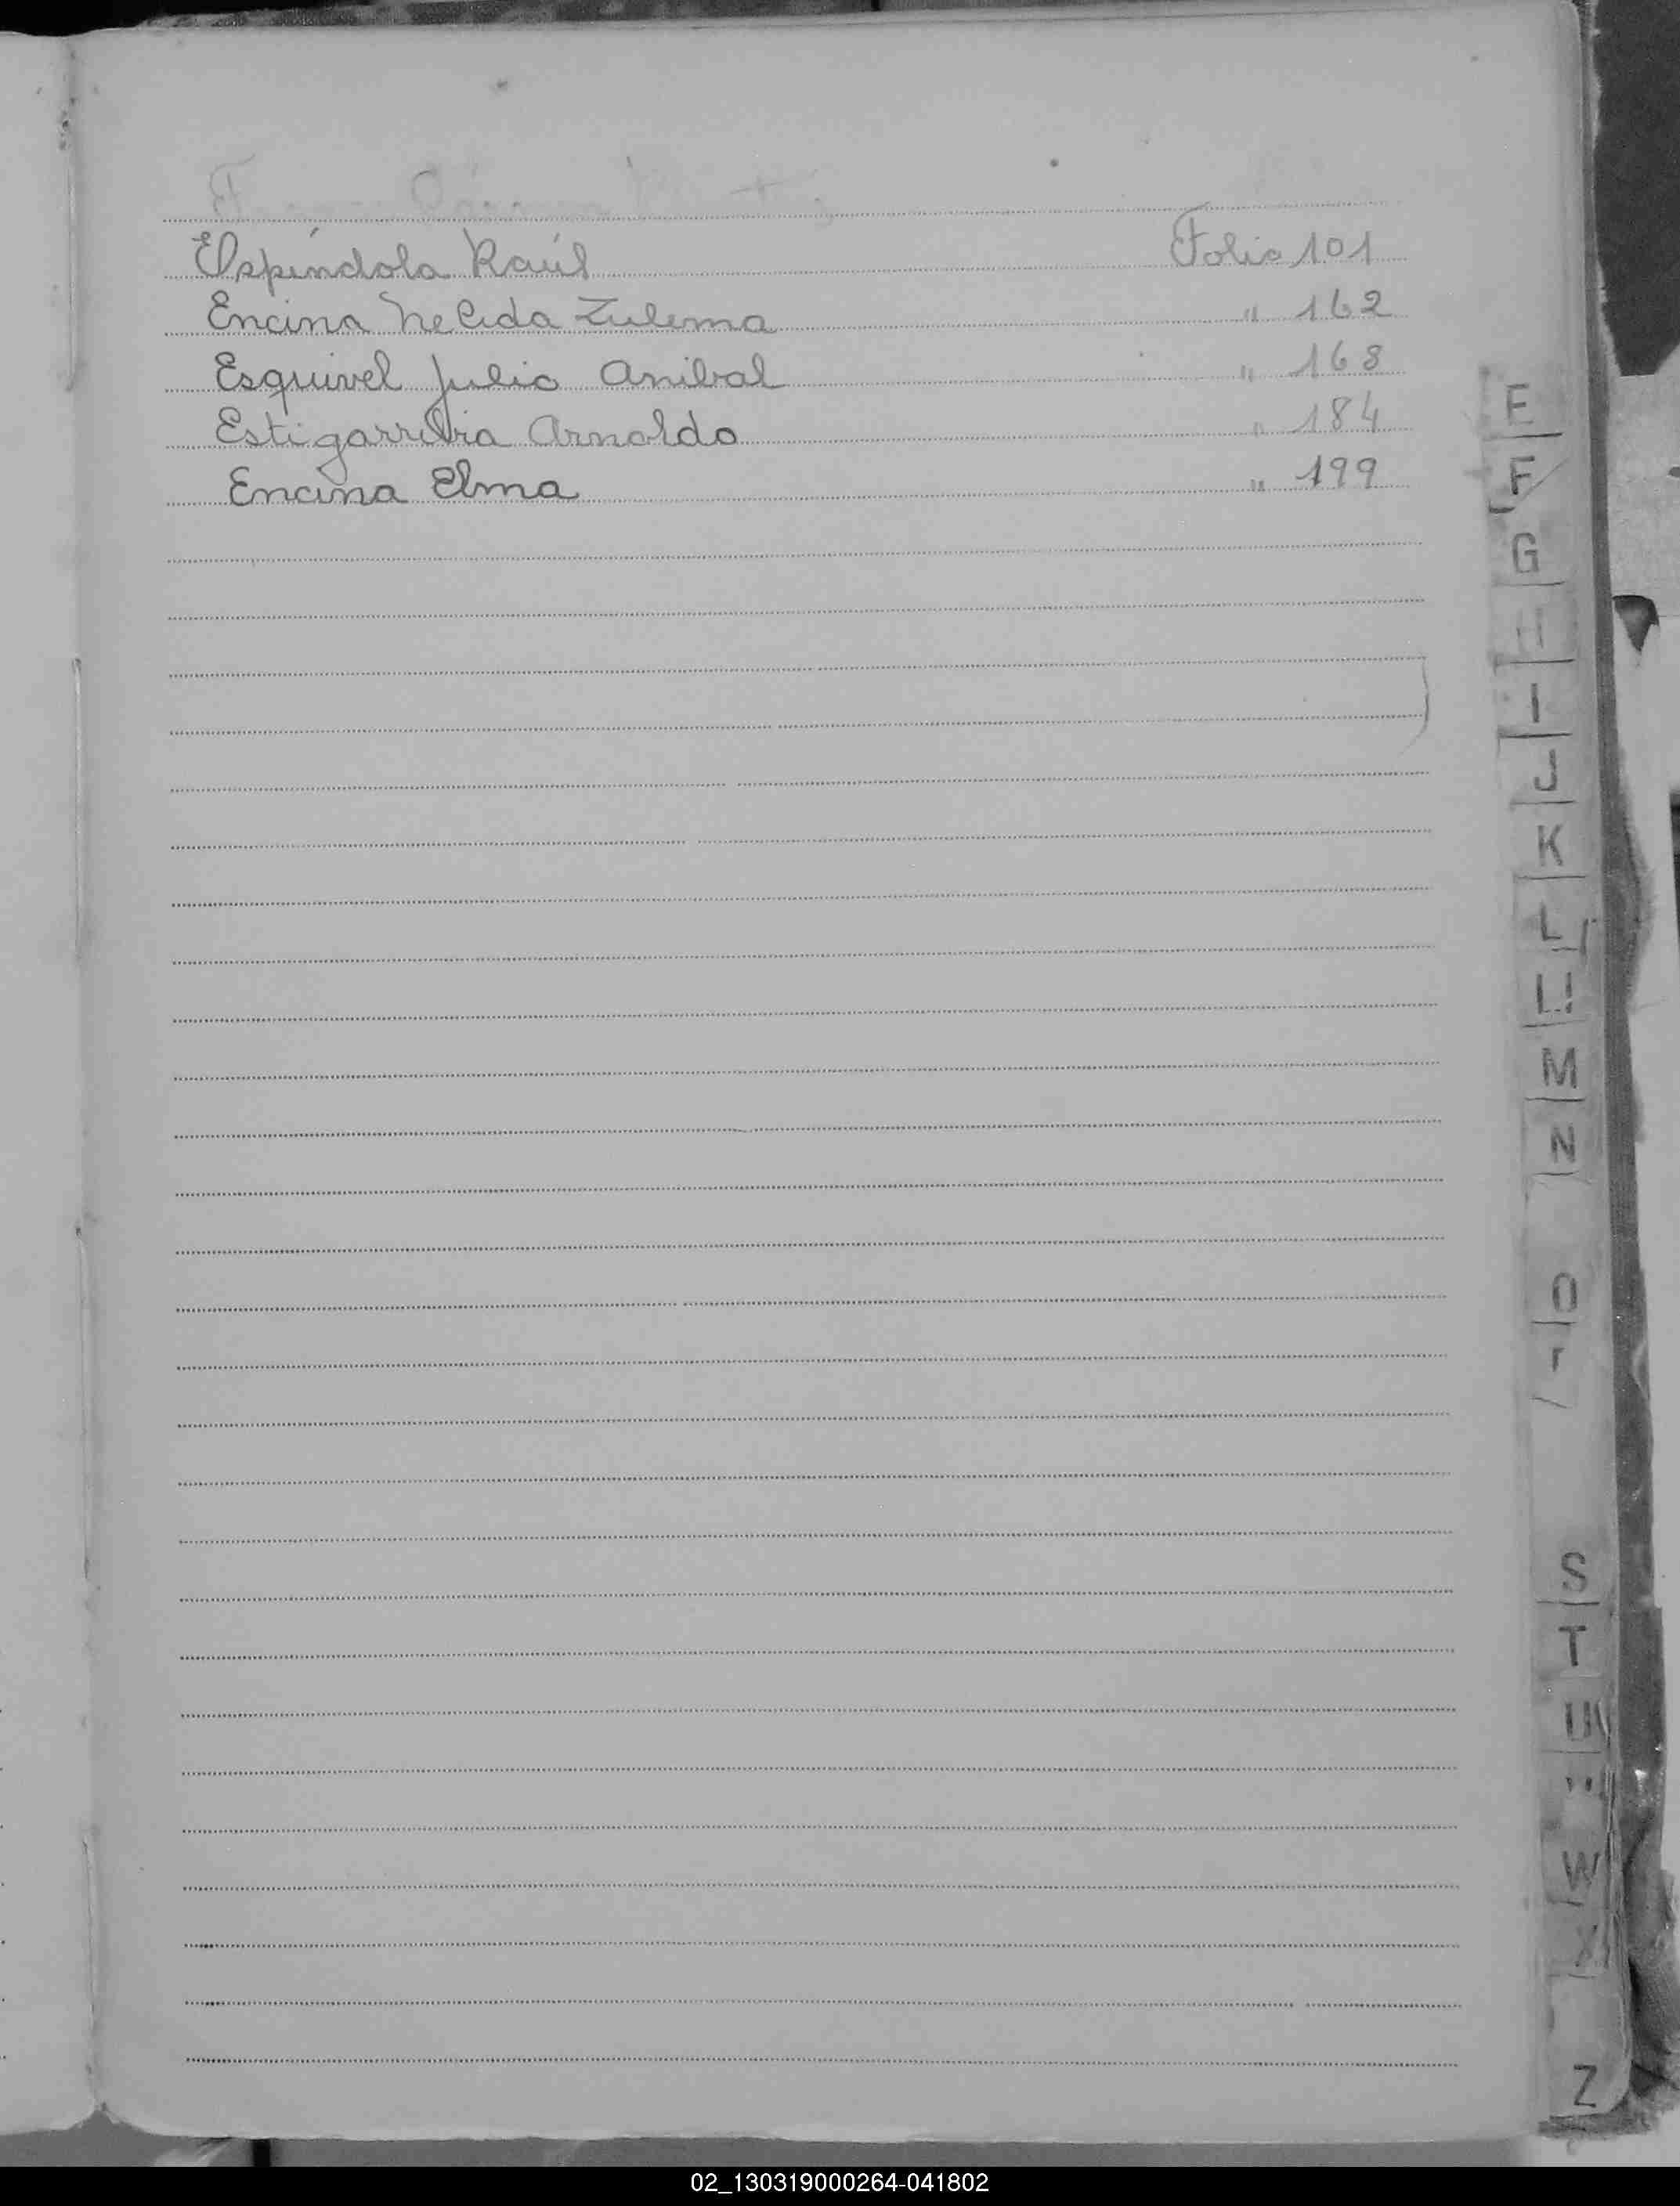 Espíndola Raúl Folio 101
Encina Nelida Zulema " 162
Esquivel Julio Anibal " 168
Estigarribia Arnoldo " 184
Encina Elma " 199
E
F
G
H
I
J
K
L
LL
M
N
O
S
T
U
W
X
Z
02_130319000264-041802